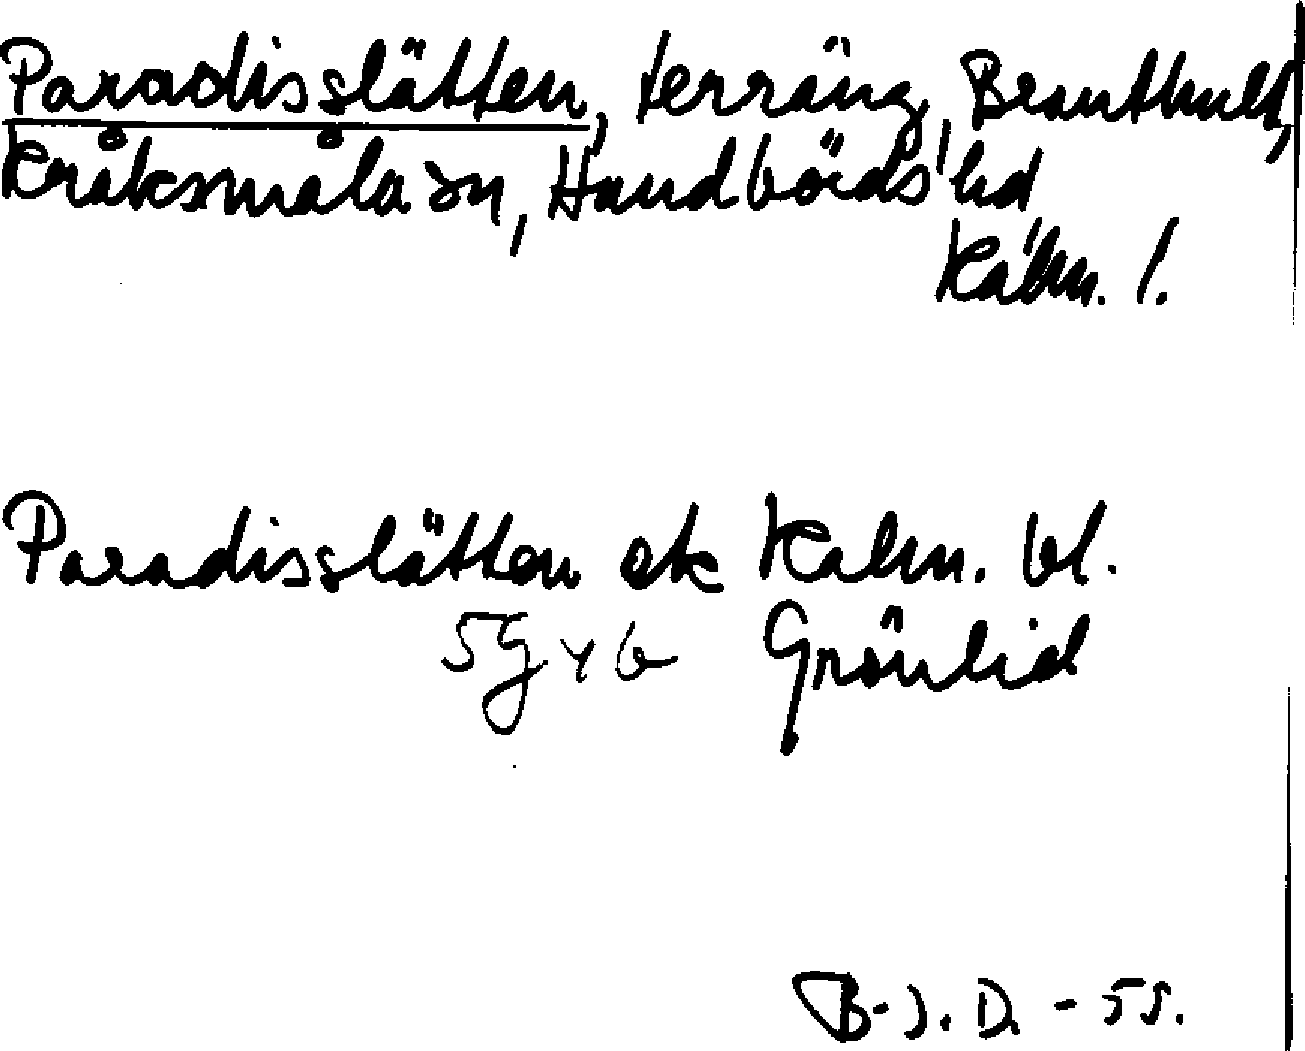 Paradisslätten, terräng, Branthult,
Kråksmåla sn, Handbörds hd,
Kalm. l.
Paradisslätten ek Kalm. bl.
5G y b Grönlid
B-J. D. - 55.